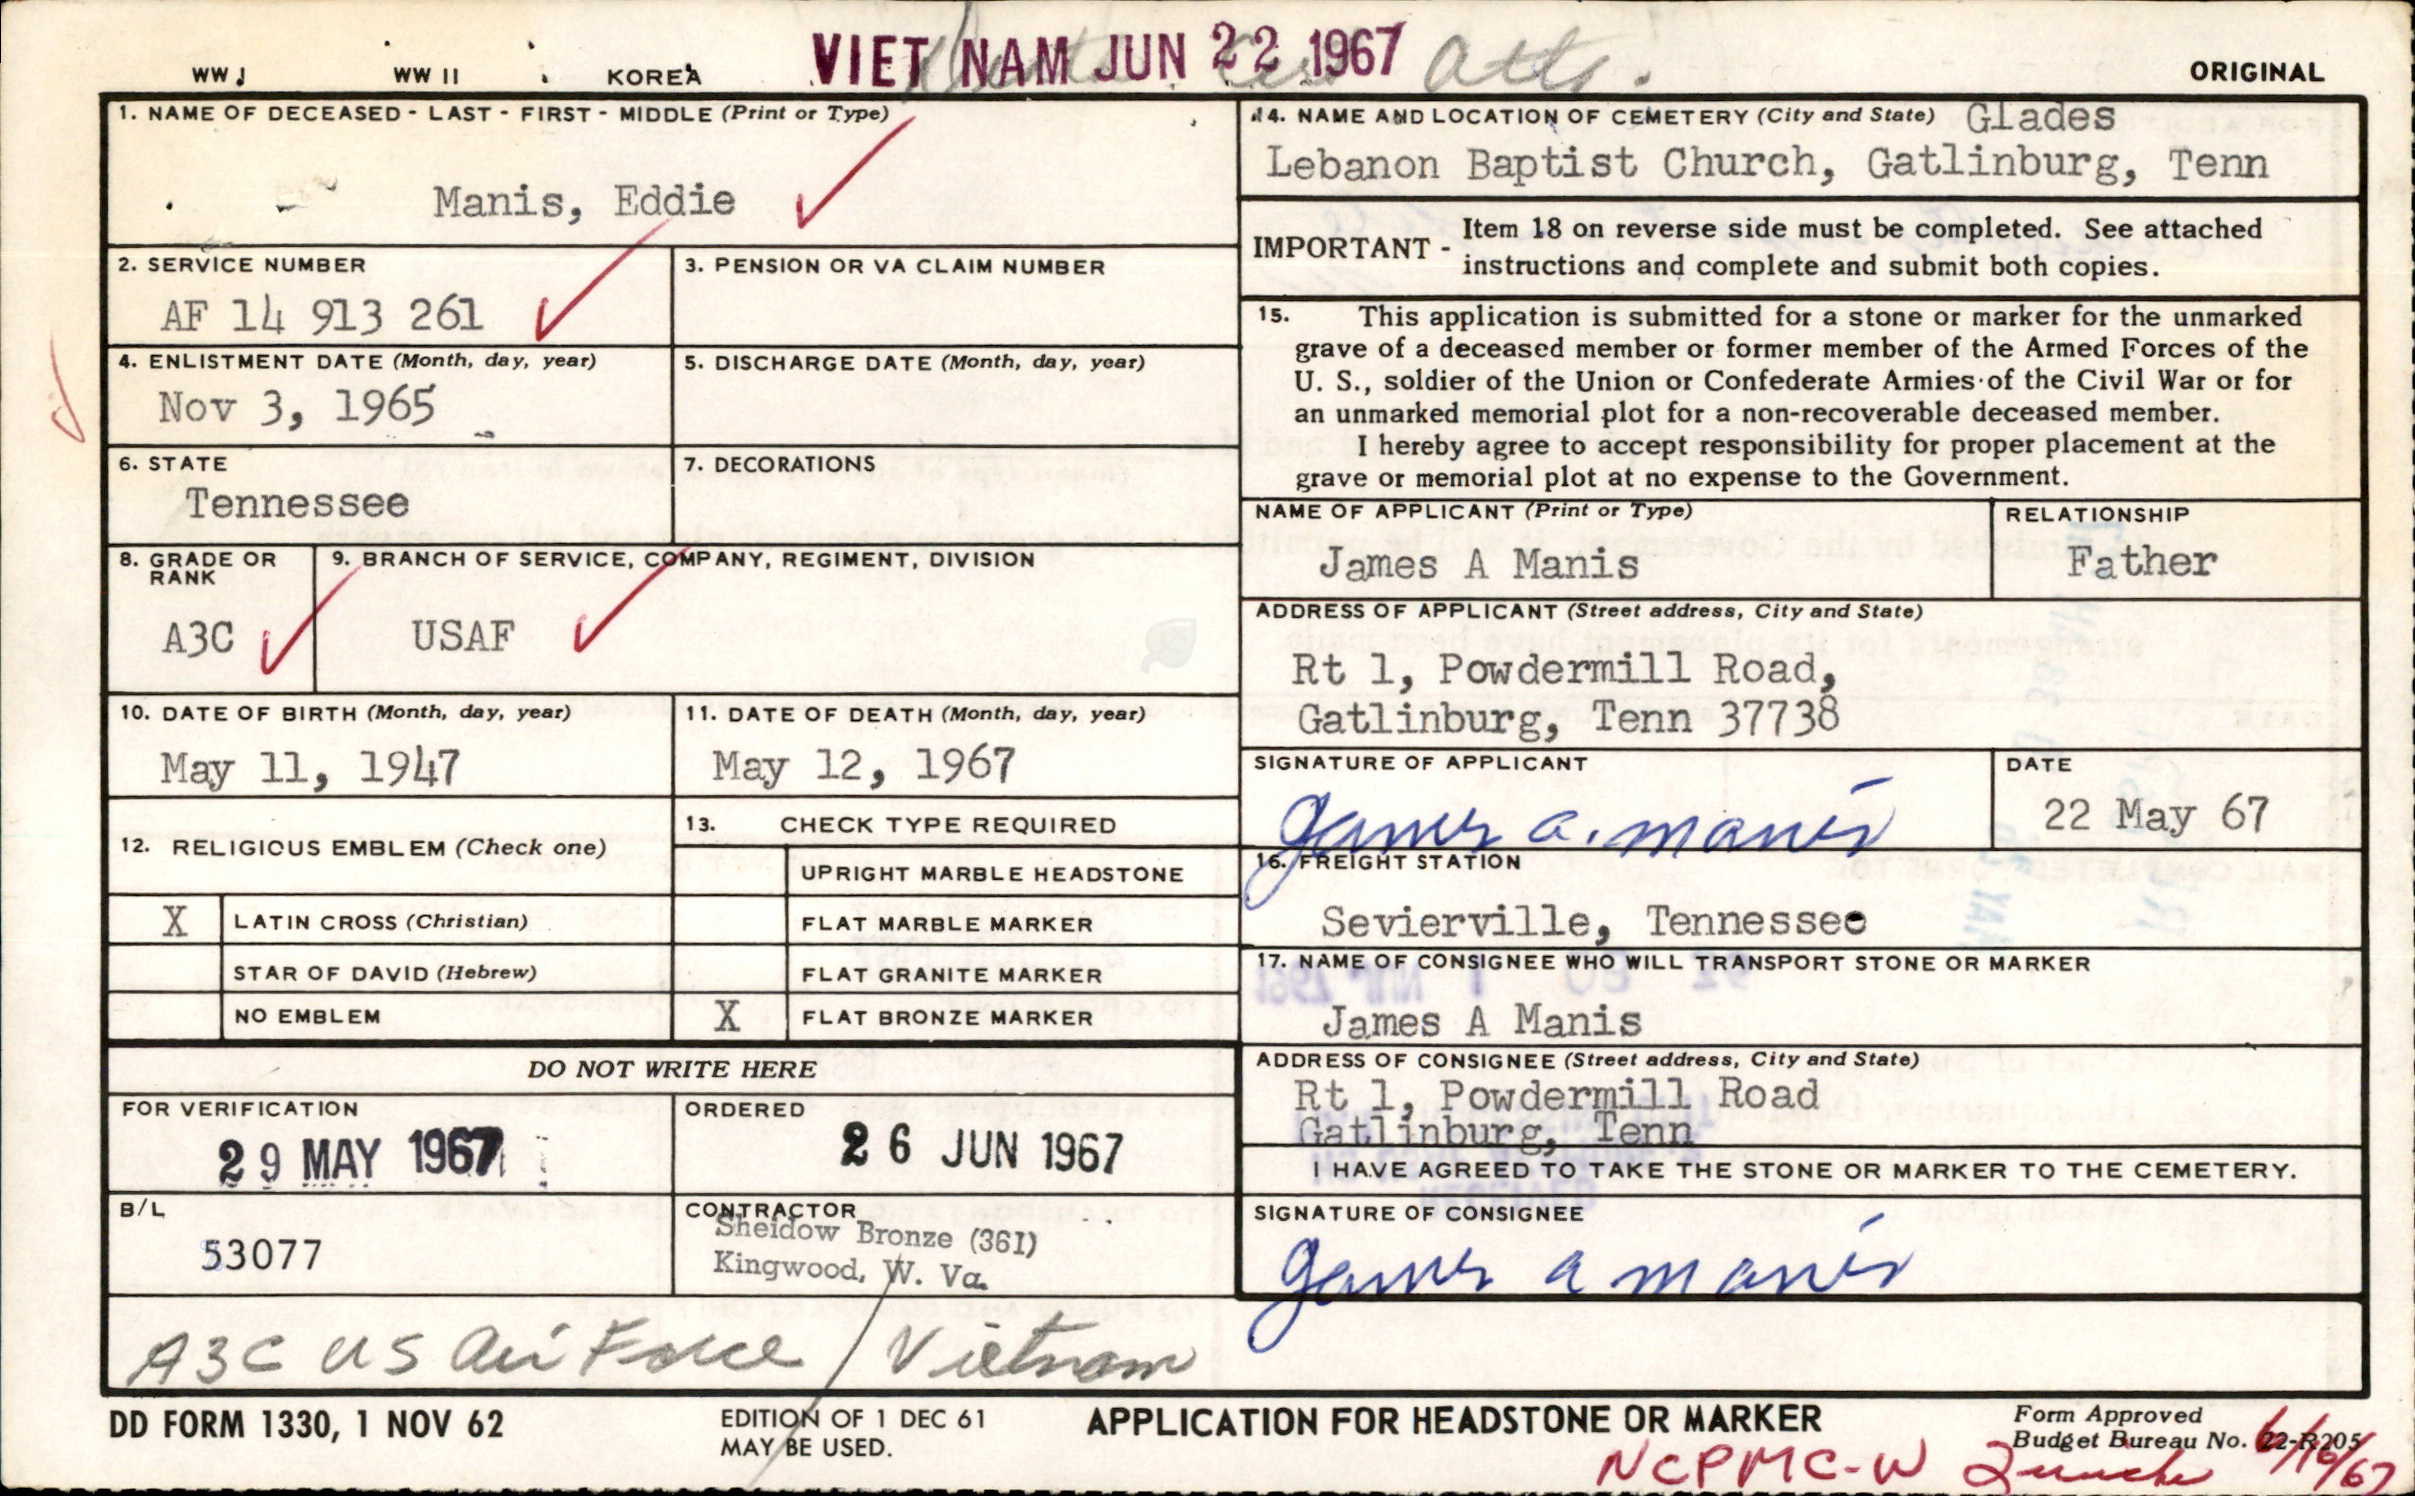 WW I WW II KOREA VIET NAM JUN 22 1967 Atts. ORIGINAL
1. NAME OF DECEASED - LAST - FIRST - MIDDLE (Print or Type)
Manis, Eddie
2. SERVICE NUMBER
AF 14 913 261
3. PENSION OR VA CLAIM NUMBER
4. ENLISTMENT DATE (Month, day, year)
Nov 3, 1965
5. DISCHARGE DATE (Month, day, year)
6. STATE
Tennessee
7. DECORATIONS
8. GRADE OR
RANK
A3C
9. BRANCH OF SERVICE, COMPANY, REGIMENT, DIVISION
USAF
10. DATE OF BIRTH (Month, day, year)
May 11, 1947
11. DATE OF DEATH (Month, day, year)
May 12, 1967
12. RELIGIOUS EMBLEM (Check one)
X LATIN CROSS (Christian)
STAR OF DAVID (Hebrew)
NO EMBLEM
13. CHECK TYPE REQUIRED
UPRIGHT MARBLE HEADSTONE
FLAT MARBLE MARKER
FLAT GRANITE MARKER
X FLAT BRONZE MARKER
DO NOT WRITE HERE
FOR VERIFICATION
29 MAY 1967
ORDERED
26 JUN 1967
B/L
53077
CONTRACTOR
Sheidow Bronze (361)
Kingwood, W. Va.
A3C US Air Force / Vietnam
14. NAME AND LOCATION OF CEMETERY (City and State) Glades
Lebanon Baptist Church, Gatlinburg, Tenn
IMPORTANT - Item 18 on reverse side must be completed. See attached
instructions and complete and submit both copies.
15. This application is submitted for a stone or marker for the unmarked
grave of a deceased member or former member of the Armed Forces of the
U. S., soldier of the Union or Confederate Armies of the Civil War or for
an unmarked memorial plot for a non-recoverable deceased member.
I hereby agree to accept responsibility for proper placement at the
grave or memorial plot at no expense to the Government.
NAME OF APPLICANT (Print or Type)
James A Manis
RELATIONSHIP
Father
ADDRESS OF APPLICANT (Street address, City and State)
Rt 1, Powdermill Road,
Gatlinburg, Tenn 37738
SIGNATURE OF APPLICANT
James A. Manis
DATE
22 May 67
16. FREIGHT STATION
Sevierville, Tennessee
17. NAME OF CONSIGNEE WHO WILL TRANSPORT STONE OR MARKER
James A Manis
ADDRESS OF CONSIGNEE (Street address, City and State)
Rt 1, Powdermill Road
Gatlinburg, Tenn
I HAVE AGREED TO TAKE THE STONE OR MARKER TO THE CEMETERY.
SIGNATURE OF CONSIGNEE
James A Manis
DD FORM 1330, 1 NOV 62
EDITION OF 1 DEC 61
MAY BE USED.
APPLICATION FOR HEADSTONE OR MARKER
Form Approved
Budget Bureau No. 22-R205
NCPMC-W 6/16/67